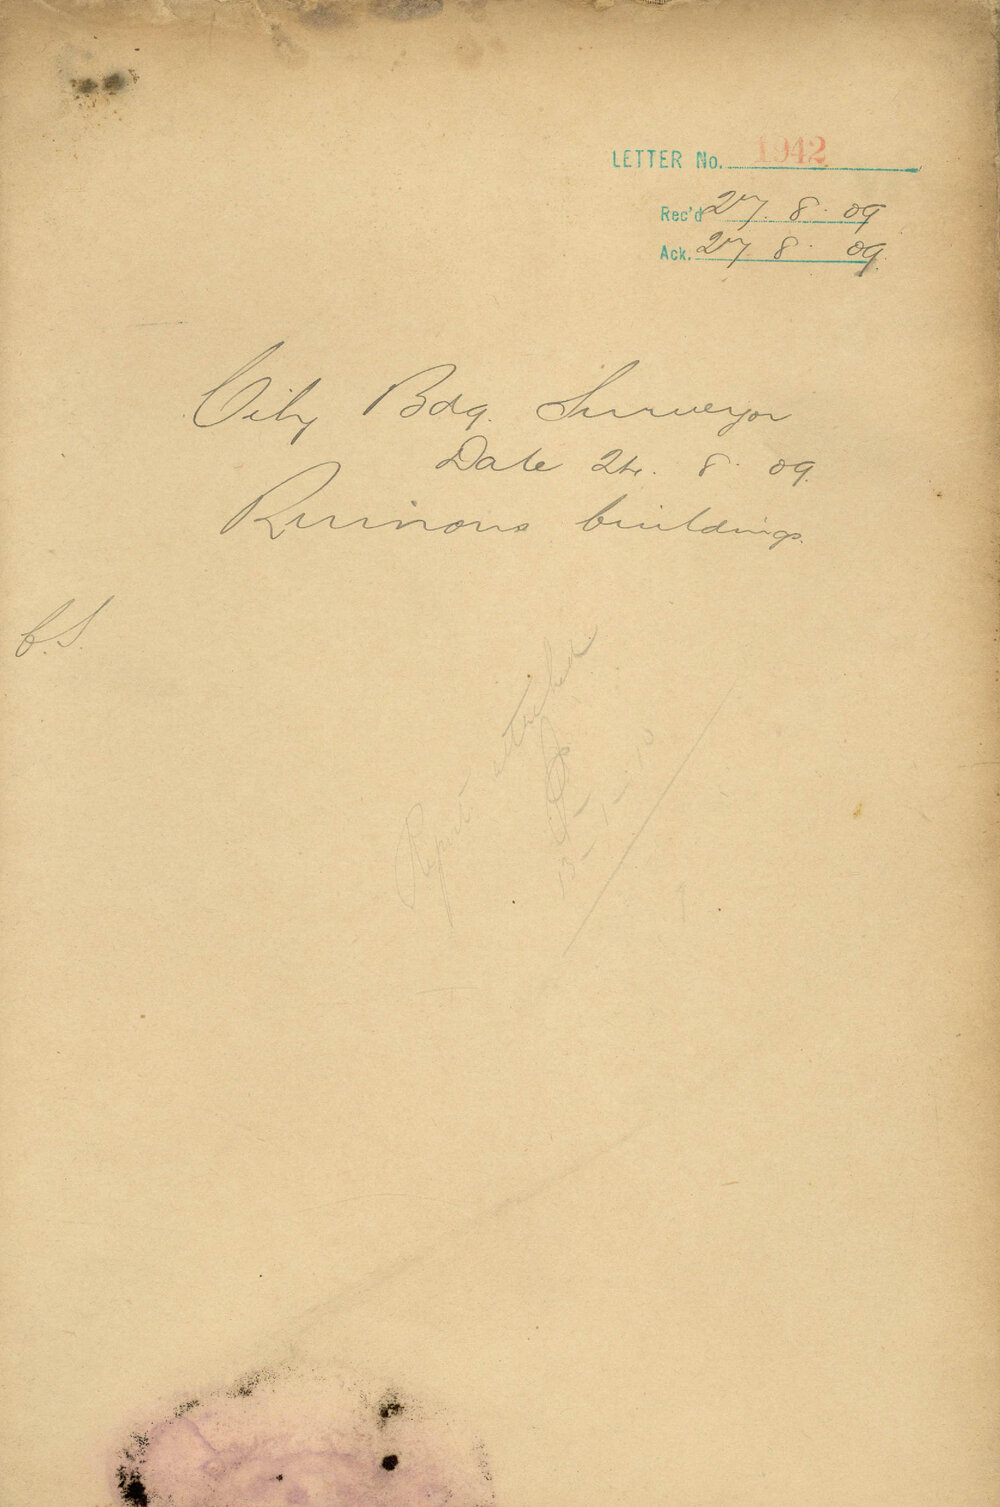 LETTER No. 1942
Rec'd 27. 8. 09
Ack. 27 8. 09.
City Bdg. Surveyor
Date 24. 8. 09.
Ruinous buildings.
C.S.
Report attached
13-1-10